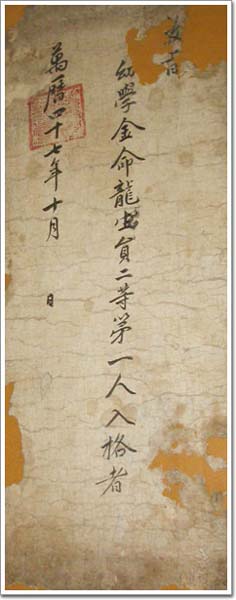 教旨
幼學金命龍生員二等第一人入格者
萬曆四十七年十月 日